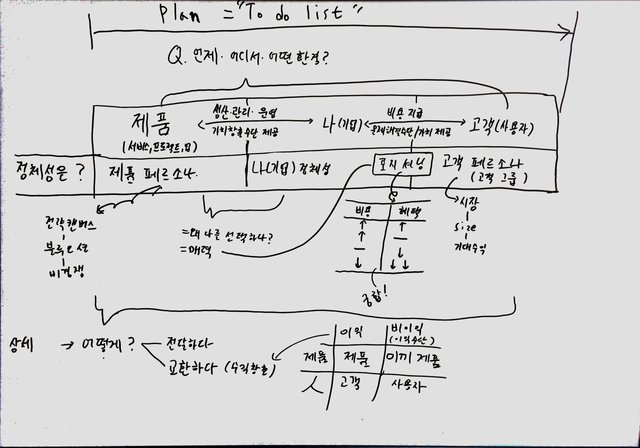 Plan = "To do list"
Q. 언제·어디서·어떤 한결?
제품
(서비스, 프로젝트, 업)
생산·관리·운영
가치창출수단 제공
나(기업)
비용 지급
문제해결수단/가치 제공
고객(사용자)
정체성은?
제품 페르소나.
나(기업) 정체성
포지셔닝
고객 페르소나
(고객 그룹)
전략캔버스
블루오션
비경쟁
=왜 나를 선택하나?
=매력
비용
혜택
궁합!
시장
size
기대수익
상세
→ 어떻게?
전달하다
교환하다 (수익창출)
이익
비이익
(이익수단)
제품
제품
미끼 제품
人
고객
사용자